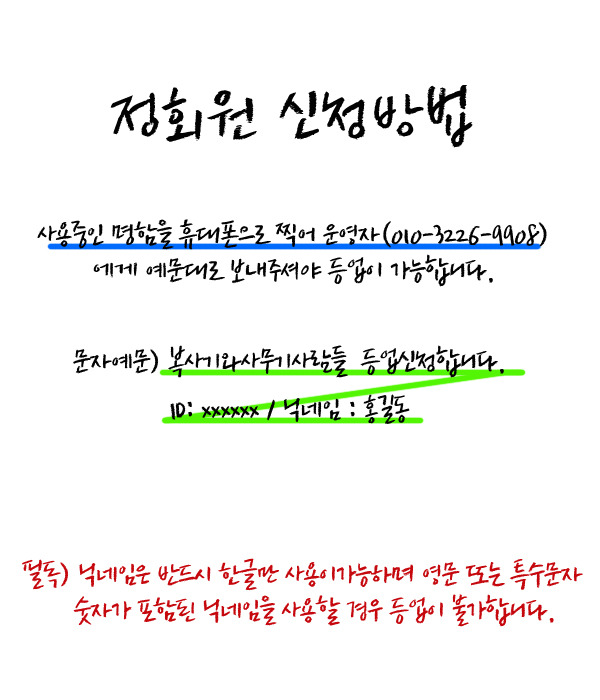 정회원 신청방법
사용중인 명함을 휴대폰으로 찍어 운영자(010-3226-9908)
에게 예문대로 보내주셔야 등업이 가능합니다.
문자예문) 복사기와사무기사람들 등업신청합니다.
ID: xxxxxx / 닉네임 : 홍길동
필독) 닉네임은 반드시 한글만 사용이가능하며 영문 또는 특수문자
숫자가 포함된 닉네임을 사용할 경우 등업이 불가합니다.